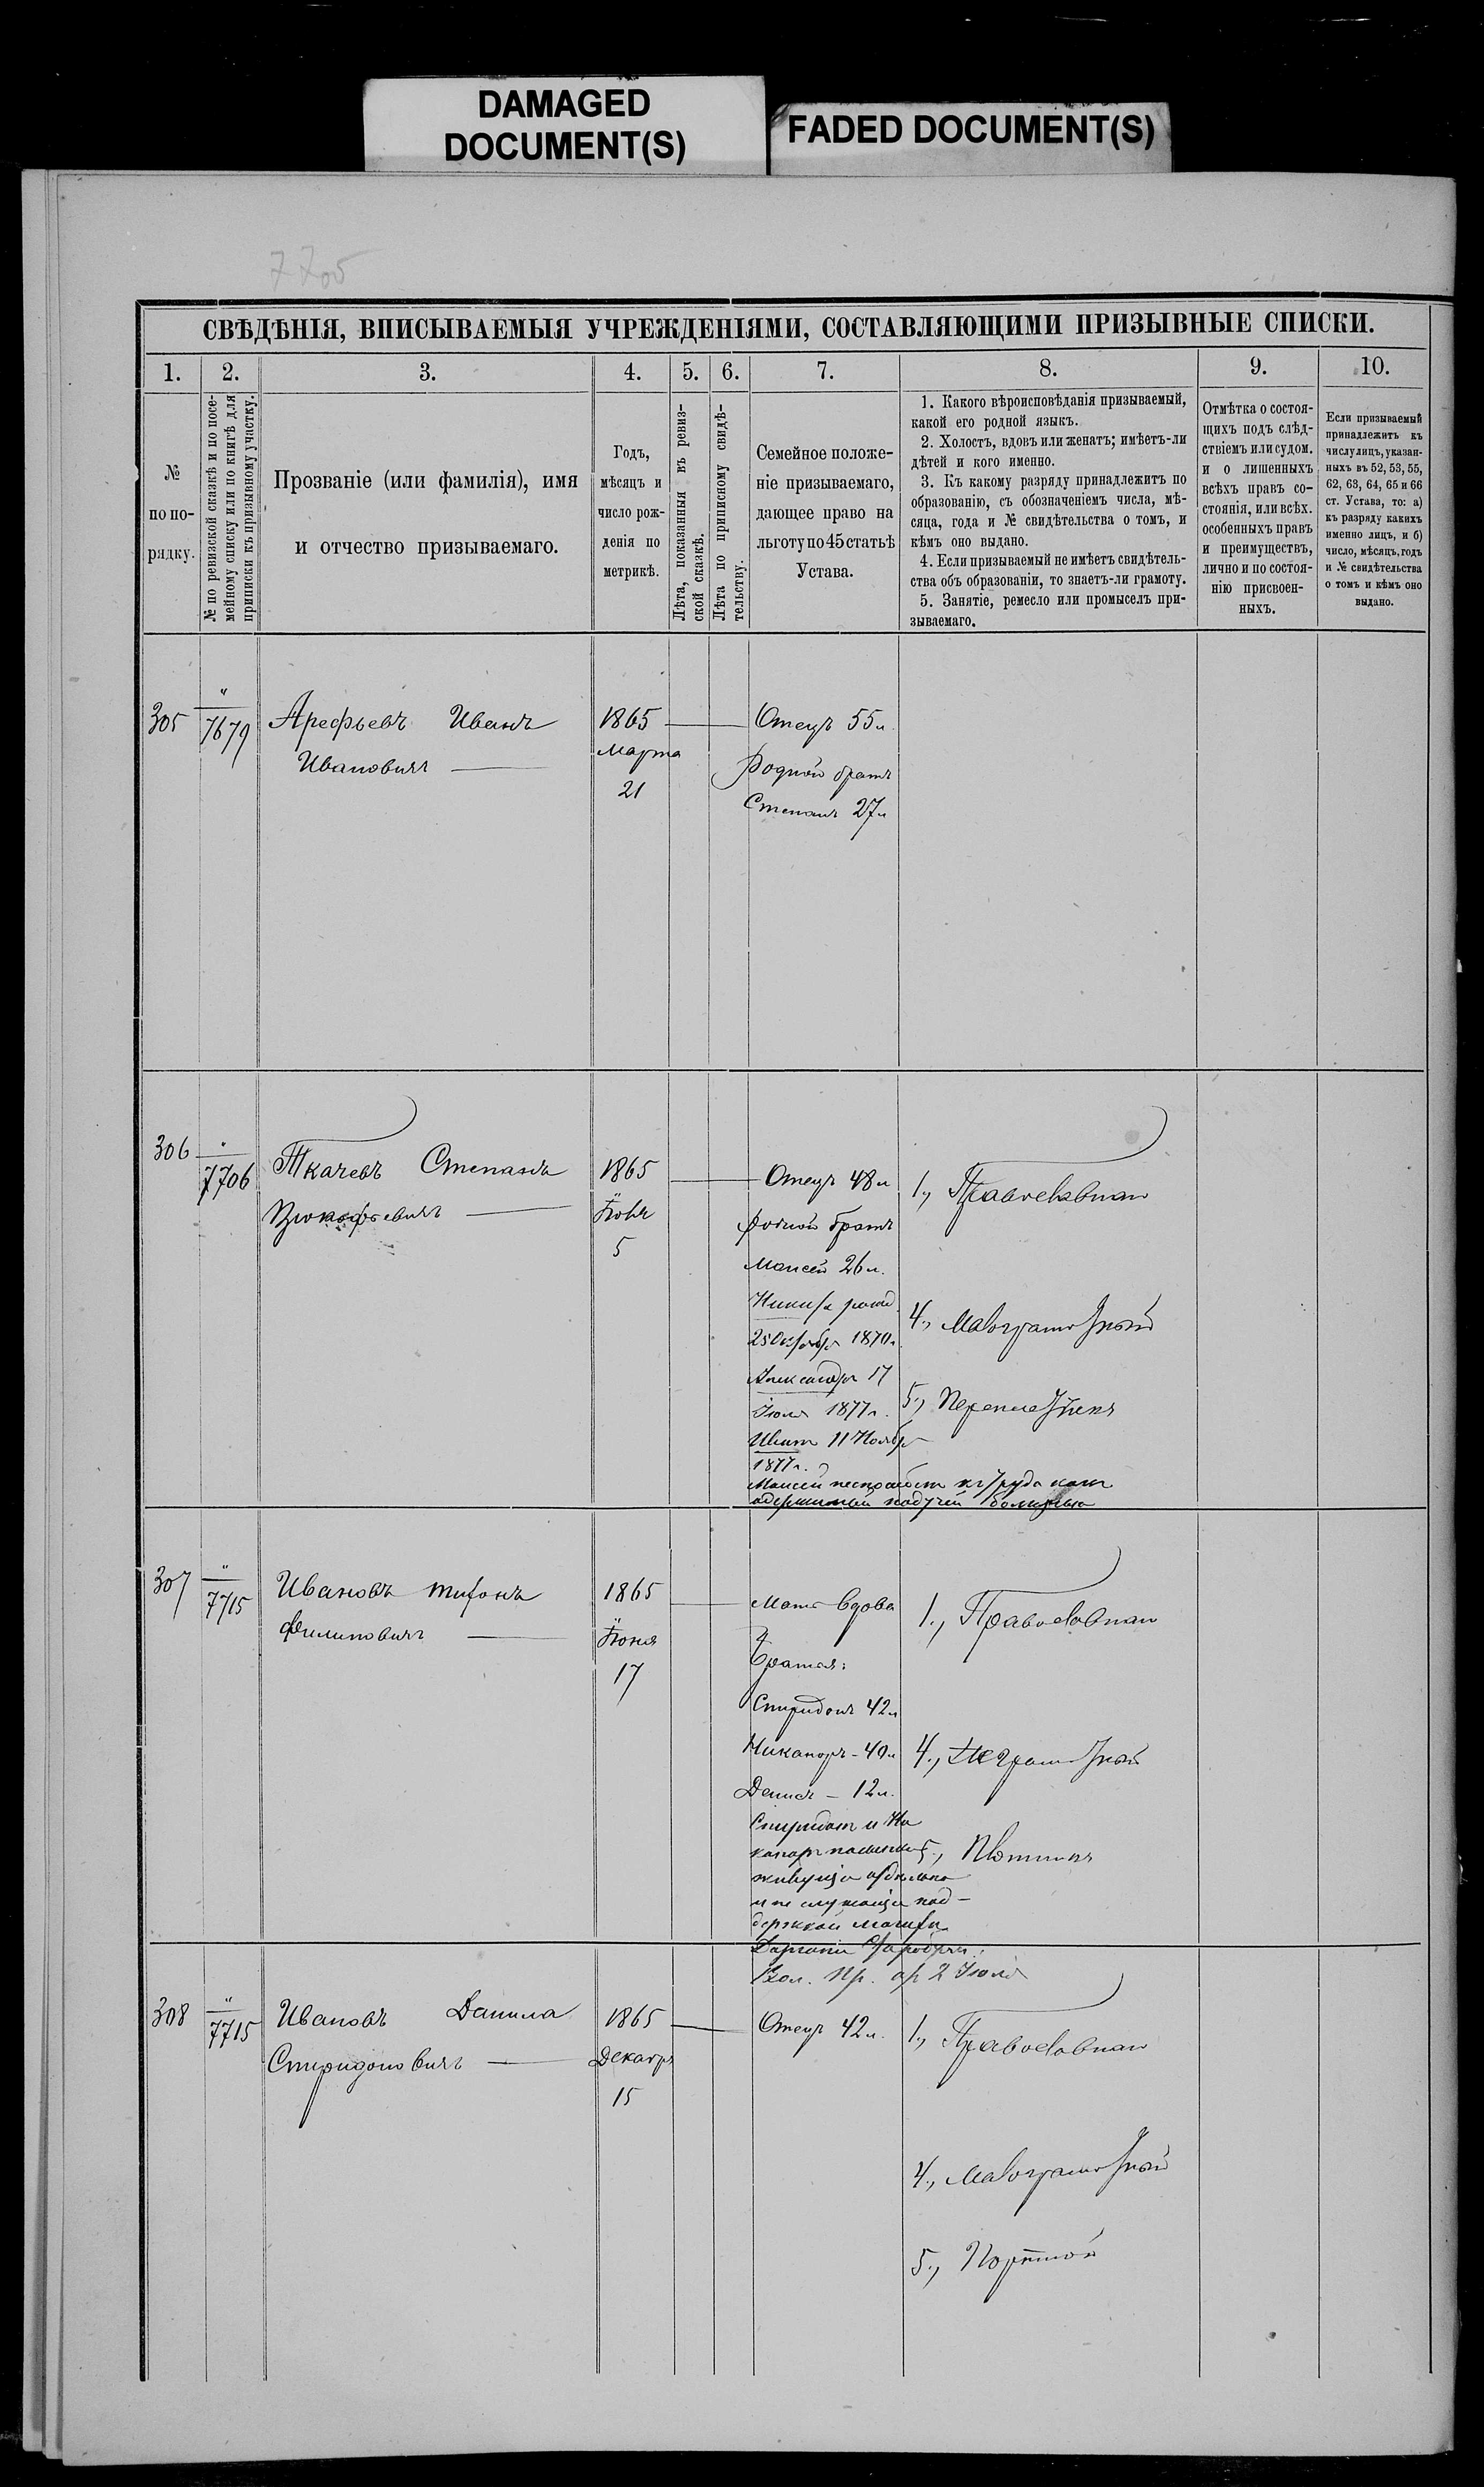 DAMAGED
DOCUMENT(S)
FADED DOCUMENT(S)
7705
СВѢДѢНІЯ, ВПИСЫВАЕМЫЯ УЧРЕЖДЕНІЯМИ, СОСТАВЛЯЮЩИМИ ПРИЗЫВНЫЕ СПИСКИ.
1. 2. 3. 4. 5. 6. 7. 8. 9. 10.
№
по по-
рядку.
№ по ревизской сказкѣ и по посе-
мейному списку или по книгѣ для
приписки къ призывному участку.
Прозваніе (или фамилія), имя
и отчество призываемаго.
Годъ,
мѣсяцъ и
число рож-
денія по
метрикѣ.
Лѣта, показанныя въ ревиз-
ской сказкѣ.
Лѣта по приписному свидѣ-
тельству.
Семейное положе-
ніе призываемаго,
дающее право на
льготу по 45 статьѣ
Устава.
1. Какого вѣроисповѣданія призываемый,
какой его родной языкъ.
2. Холостъ, вдовъ или женатъ; имѣетъ-ли
дѣтей и кого именно.
3. Къ какому разряду принадлежитъ по
образованію, съ обозначеніемъ числа, мѣ-
сяца, года и № свидѣтельства о томъ, и
кѣмъ оно выдано.
4. Если призываемый не имѣетъ свидѣтель-
ства объ образованіи, то знаетъ-ли грамоту.
5. Занятіе, ремесло или промыселъ при-
зываемаго.
Отмѣтка о состоя-
щихъ подъ слѣд-
ствіемъ или судом.
и о лишенныхъ
всѣхъ правъ со-
стоянія, или всѣх.
особенныхъ правъ
и преимуществъ,
лично и по состоя-
нію присвоен-
ныхъ.
Если призываемый
принадлежитъ къ
числу лицъ, указан-
ныхъ въ 52, 53, 55,
62, 63, 64, 65 и 66
ст. Устава, то: а)
къ разряду какихъ
именно лицъ, и б)
число, мѣсяцъ, годъ
и № свидѣтельства
о томъ и кѣмъ оно
выдано.
305
"
7679
Арефьевъ Иванъ
Ивановичъ
1865
Марта
21
Отецъ 55 л.
Родной братъ
Степанъ 27 л
306
"
7706
Ткачевъ Степанъ
Прокофьевичъ
1865
5
Отецъ 48 л
родной братъ
Моисей 26 л.
Никита рожд.
25 Октября 1870 г.
Александръ 17
Іюля 1877 г.
11 Ноябр
1877 г.
Моисей неспособенъ къ труду какъ
одержимый падучей болезнью
1., Православнаго
4., Малограмотный
5.,
307
"
7715
Ивановъ Тифонъ
Филиповичъ
1865
Іюня
17
Мать вдова
Братья:
Спиридонъ 42 л
Никаноръ - 40 л
Денисъ - 12 л.
Спиридонъ и Ни
каноръ
живущіе отдѣльно
и не служащіе под-
держкой матери
Вол. Пр. отъ 2 Іюля
1., Православнаго
4., Неграмотный
5., Плотникъ
308
"
7715
Ивановъ Данила
Спиридоновичъ
1865
Декабря
15
Отецъ 42 л.
1., Православнаго
4., Малограмотный
5., Портной